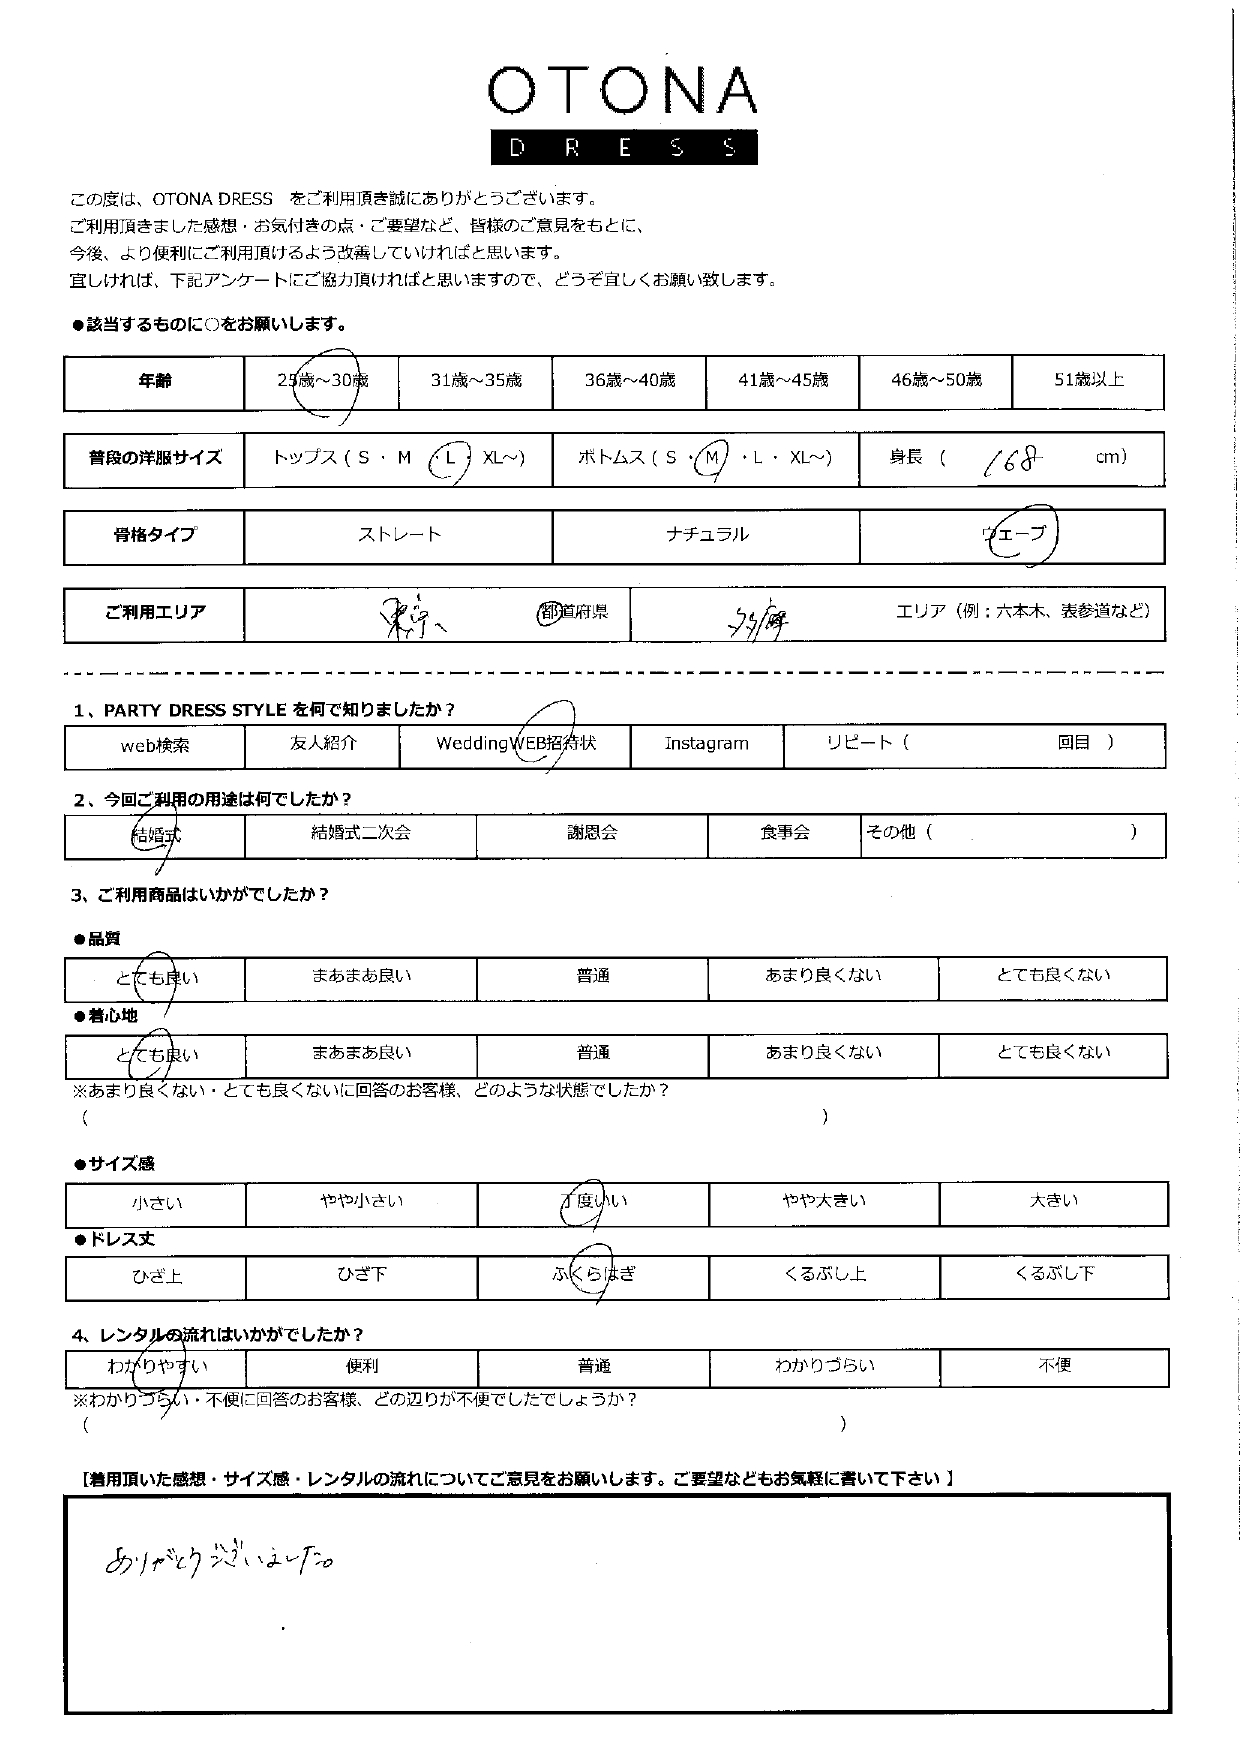 OTONA
DRESS
この度は、OTONA DRESS　をご利用頂き誠にありがとうございます。
ご利用頂きました感想・お気付きの点・ご要望など、皆様のご意見をもとに、
今後、より便利にご利用頂けるよう改善していければと思います。
宜しければ、下記アンケートにご協力頂ければと思いますので、どうぞ宜しくお願い致します。
●該当するものに○をお願いします。
年齢 25歳～30歳 31歳～35歳 36歳～40歳 41歳～45歳 46歳～50歳 51歳以上
普段の洋服サイズ トップス ( S ・ M ・ L ・ XL～) ボトムス ( S ・ M ・ L ・ XL～) 身長 ( 168 cm)
骨格タイプ ストレート ナチュラル ウェーブ
ご利用エリア 東京 都道府県 エリア（例：六本木、表参道など）
1、PARTY DRESS STYLE を何で知りましたか？
web検索 友人紹介 WeddingWEB招待状 Instagram リピート ( 回目 )
2、今回ご利用の用途は何でしたか？
結婚式 結婚式二次会 謝恩会 食事会 その他 ( )
3、ご利用商品はいかがでしたか？
●品質
とても良い まあまあ良い 普通 あまり良くない とても良くない
●着心地
とても良い まあまあ良い 普通 あまり良くない とても良くない
※あまり良くない・とても良くないに回答のお客様、どのような状態でしたか？
( )
●サイズ感
小さい やや小さい 丁度いい やや大きい 大きい
●ドレス丈
ひざ上 ひざ下 ふくらはぎ くるぶし上 くるぶし下
4、レンタルの流れはいかがでしたか？
わかりやすい 便利 普通 わかりづらい 不便
※わかりづらい・不便に回答のお客様、どの辺りが不便でしたでしょうか？
( )
【着用頂いた感想・サイズ感・レンタルの流れについてご意見をお願いします。ご要望などもお気軽に書いて下さい 】
ありがとうございました。